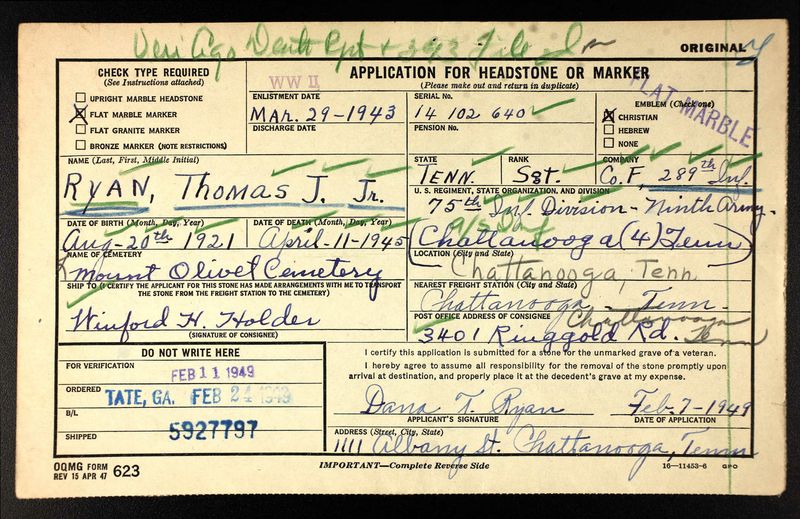 Veri Ago Death Rpt + 293 File
ORIGINAL
CHECK TYPE REQUIRED
(See Instructions attached)
UPRIGHT MARBLE HEADSTONE
X FLAT MARBLE MARKER
FLAT GRANITE MARKER
BRONZE MARKER (NOTE RESTRICTIONS)
WW II
APPLICATION FOR HEADSTONE OR MARKER
(Please make out and return in duplicate)
ENLISTMENT DATE
Mar. 29-1943
DISCHARGE DATE
SERIAL No.
14 102 640
PENSION No.
EMBLEM (Check one)
X CHRISTIAN
HEBREW
NONE
FLAT MARBLE
NAME (Last, First, Middle Initial)
RYAN, Thomas J. Jr.
STATE
TENN.
RANK
Sgt.
COMPANY
Co. F, 289th Inf.
U. S. REGIMENT, STATE ORGANIZATION, AND DIVISION
75th Inf. Division - Ninth Army.
DATE OF BIRTH (Month, Day, Year)
Aug-20th 1921
DATE OF DEATH (Month, Day, Year)
April-11-1945
(Chattanooga (4) Tenn)
NAME OF CEMETERY
Mount Olivet Cemetery
LOCATION (City and State)
Chattanooga, Tenn
SHIP TO (I CERTIFY THE APPLICANT FOR THIS STONE HAS MADE ARRANGEMENTS WITH ME TO TRANSPORT THE STONE FROM THE FREIGHT STATION TO THE CEMETERY)
Winford H. Holder
(SIGNATURE OF CONSIGNEE)
NEAREST FREIGHT STATION (City and State)
Chattanooga - Tenn.
POST OFFICE ADDRESS OF CONSIGNEE
Chattanooga
3401 Ringgold Rd. Tenn
DO NOT WRITE HERE
FOR VERIFICATION
FEB 11 1949
ORDERED
TATE, GA. FEB 24 1949
B/L
5927797
SHIPPED
I certify this application is submitted for a stone for the unmarked grave of a veteran.
I hereby agree to assume all responsibility for the removal of the stone promptly upon
arrival at destination, and properly place it at the decedent's grave at my expense.
Dana T. Ryan
APPLICANT'S SIGNATURE
Feb-7-1949
DATE OF APPLICATION
ADDRESS (Street, City, State)
1111 Albany St. Chattanooga, Tenn
OQMG FORM
REV 15 APR 47 623
IMPORTANT—Complete Reverse Side
16—11453-6 GPO